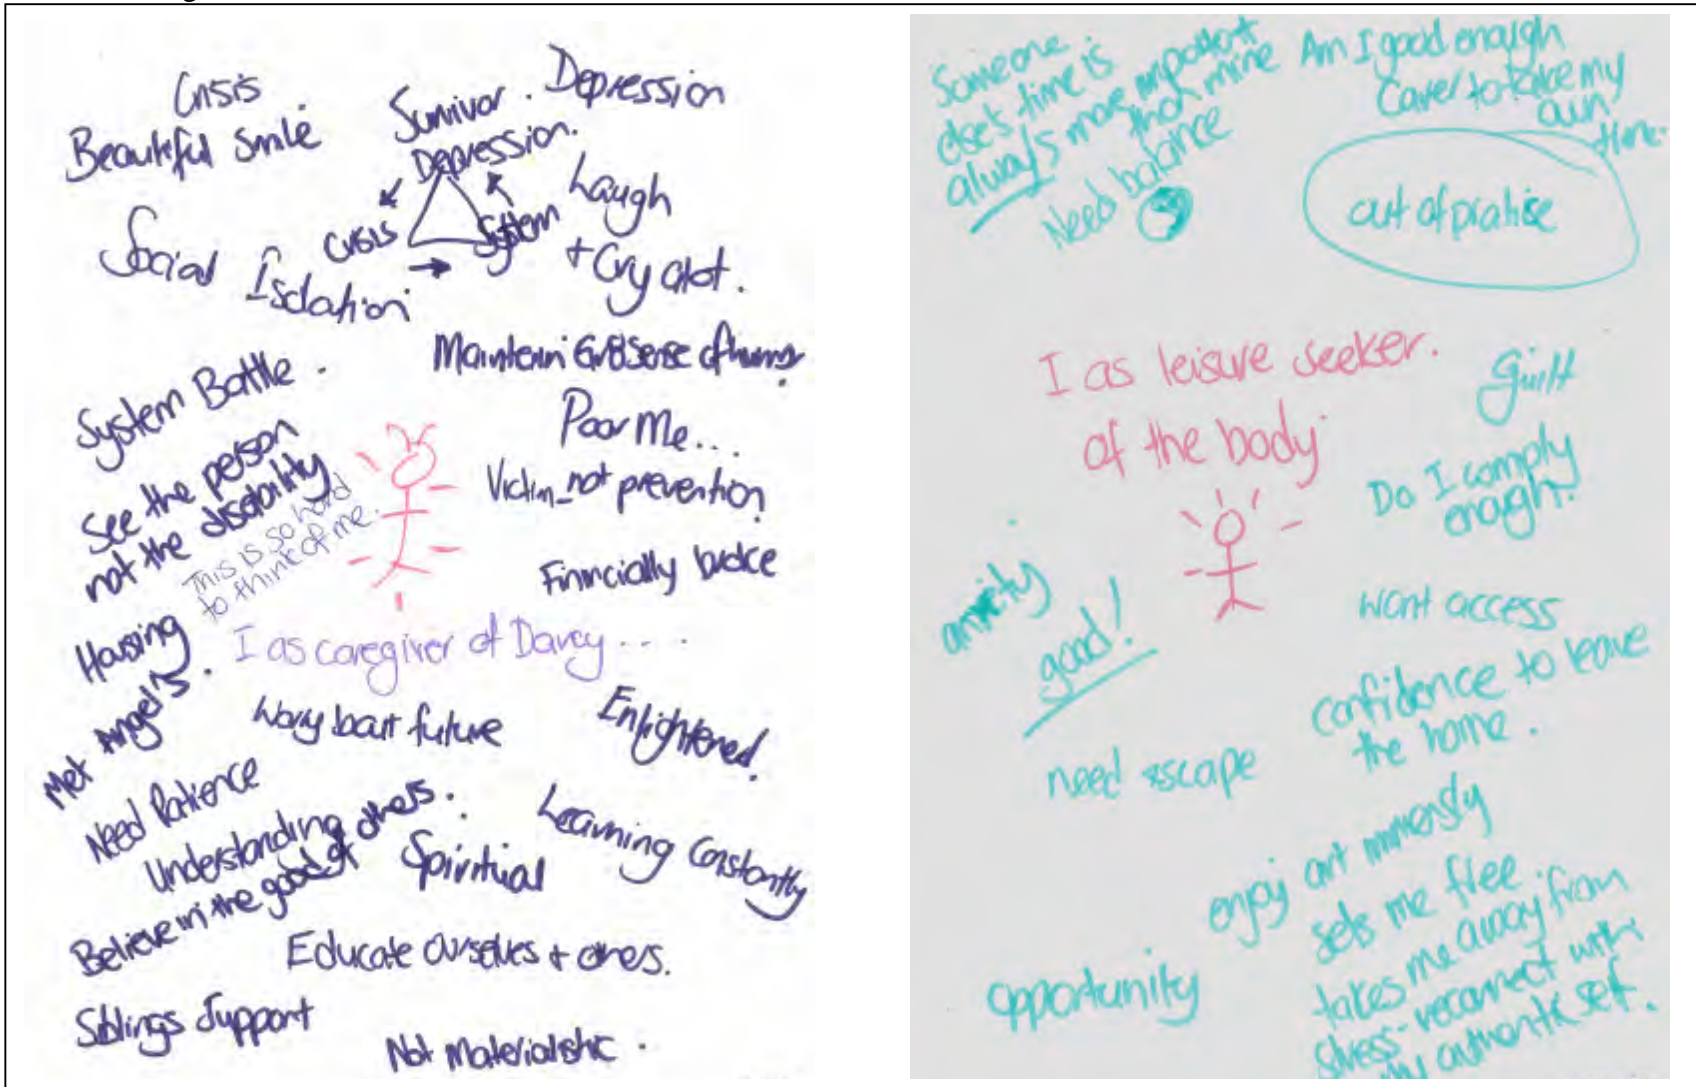 Crisis
Beautiful Smile
Survivor.
Depression
Depression.
Crisis
System
Laugh
+ Cry alot.
Social Isolation
System Battle.
Maintain Gr8 Sense of humor
Poor Me...
See the person
not the disability
This is so hard
to think of me.
Victim not prevention
Finincially broke
Housing
I as caregiver of Davey...
Met Angel's.
Worry bout future
Enlightened.
Need Patience
Understanding
Believe in the good of others.
Spiritual
Learning Constantly
Educate Ourselves + others.
Siblings Support
Not Materialistic.
Someone
else's time is
always more important
than mine
Need balance
Am I good enough
Carer to take my
own
time.
out of pratise
I as leisure seeker.
of the body
Guilt
Do I comply
enough.
anxiety
good!
want access
confidence to leave
the home.
need escape
enjoy art immensly
sets me free
takes me away from
stress-reconnect with
my authentic self.
opportunity